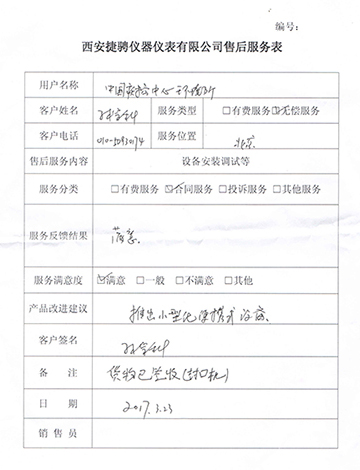 编号：
西安捷骋仪器仪表有限公司售后服务表
用户名称 中国疾控中心
客户姓名 服务类型 □有费服务☑无偿服务
客户电话 服务位置 北京
售后服务内容 设备安装调试等
服务分类 □有费服务 ☑合同服务 □投诉服务 □其他服务
服务反馈结果 满意.
服务满意度 ☑满意 □一般 □不满意 □其他
产品改进建议 推出小型化便携式
客户签名
备 注 货物已签收(封口机)
日 期 2017.3.23
销 售 员